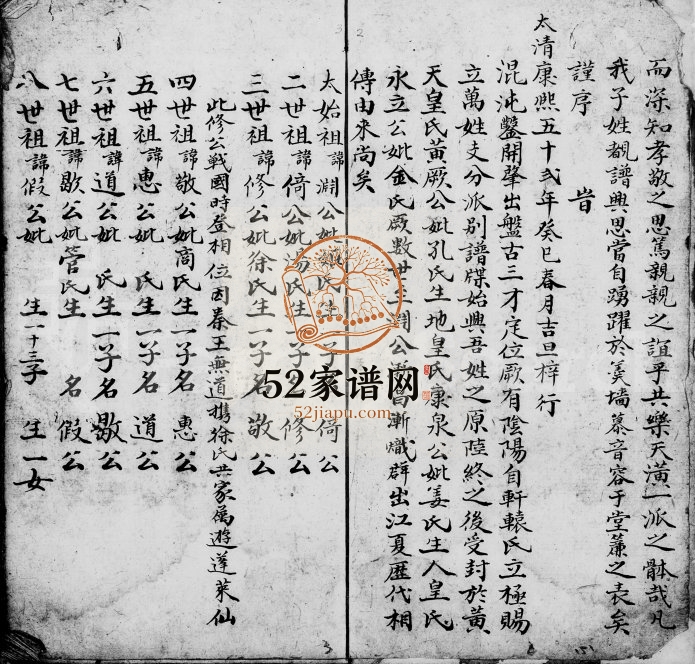 而深知孝敬之思篤親親之誼乎共樂天潢一派之骵哉凡
我子姓覩譜興思當自踴躍於羙墻慕音容于堂簾之表矣
謹序 旹
太清康熈五十弍年癸巳春月吉旦梓行
混沌鑿開肇出盤古三才定位厥有陰陽自軒轅氏立極賜
立萬姓支分派别譜牒始興吾姓之原陸終之後受封於黄
天皇氏黄厥公妣孔氏生地皇氏康泉公妣姜氏生人皇氏
永立公妣金氏厥数世生渊公漸熾群出江夏歷代相
傳由来尚矣
太始祖諱渊公妣氏生子名倚公
二世祖諱倚公妣湯氏生一子名修公
三世祖諱修公妣徐氏生一子名敬公
此修公戰國時登相位因秦王無道携徐氏共家爲遊蓬萊仙
四世祖諱敬公妣商氏生一子名惠公
五世祖諱惠公妣 氏生一子名道公
六世祖諱道公妣 氏生一子名歇公
七世祖諱歇公妣管氏生 名假公
八世祖諱假公妣 生一十三子 生一女
52家谱网
52jiapu.com